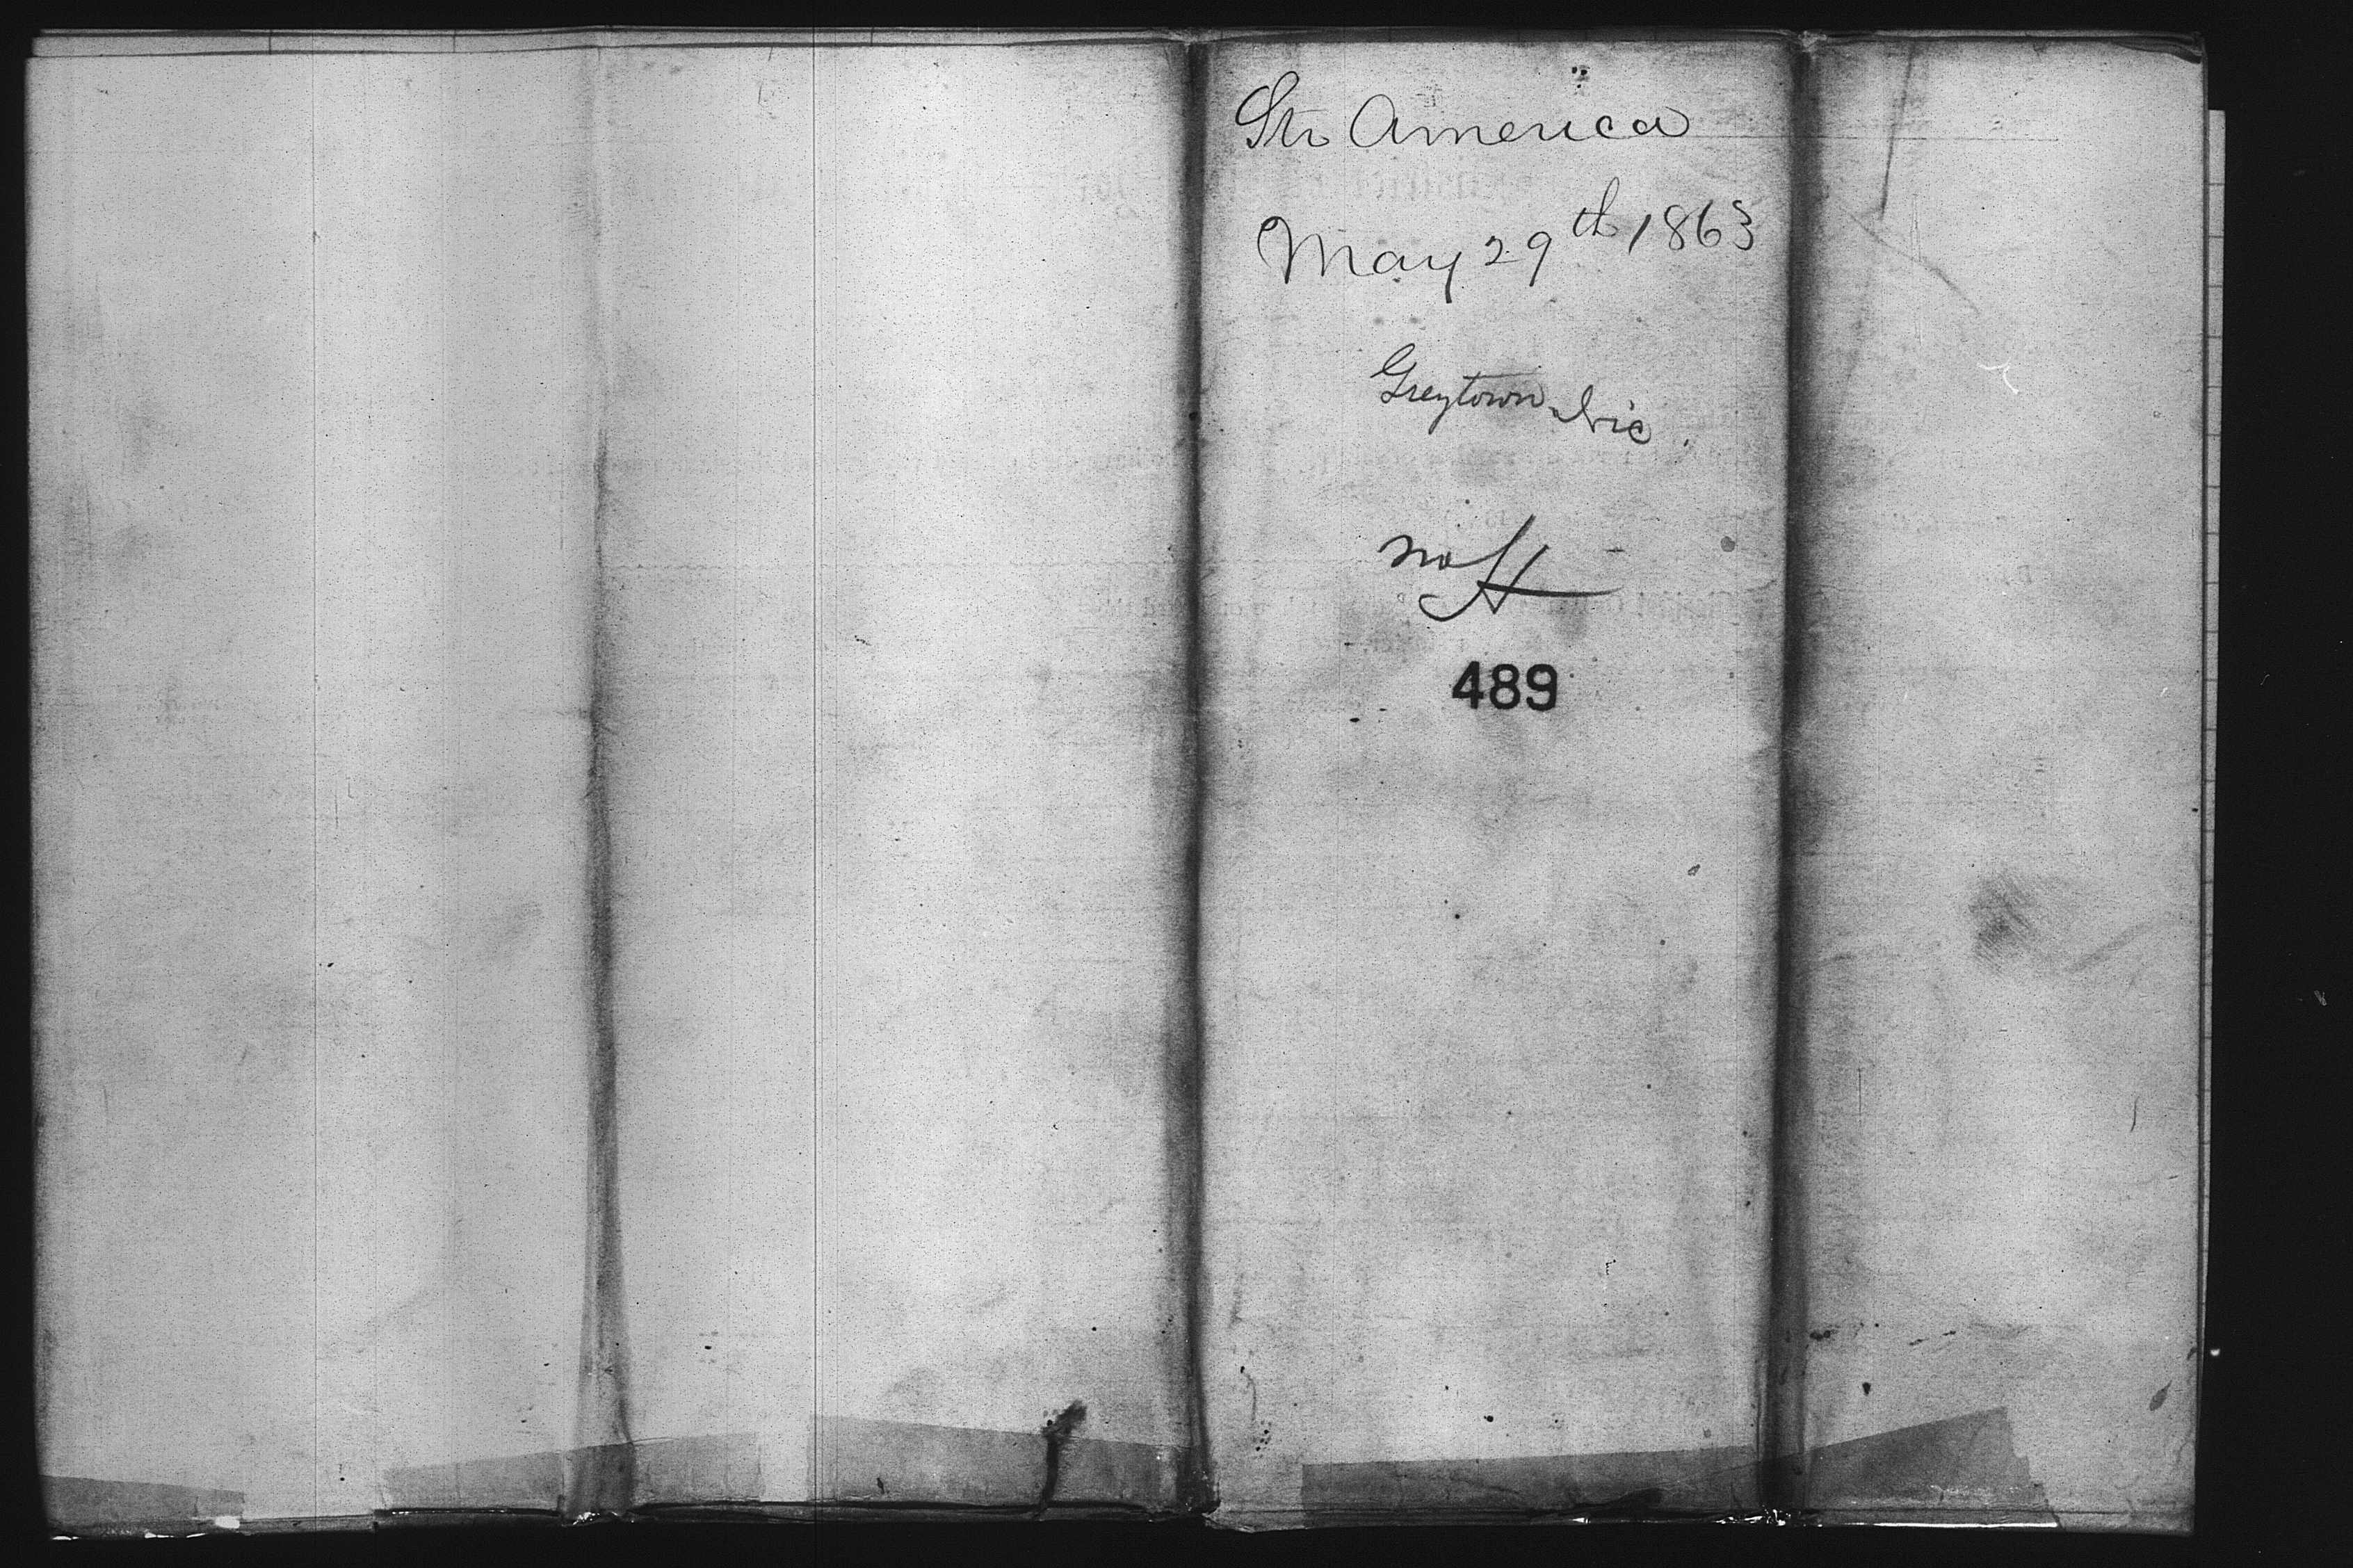 Str America
May 29th 1863
Greytown Nic.
No
489